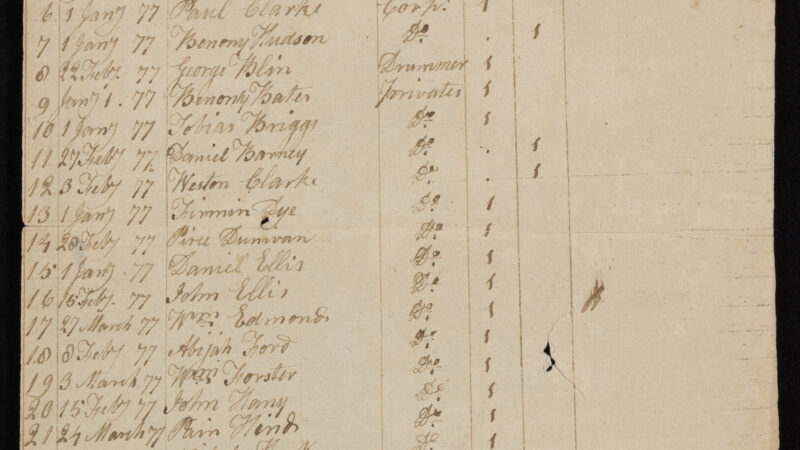 6 1 Jany 77 Paul Clarke Corpl. 1
7 1 Jany 77 Benony Hudson Do. . 1
8 22 Feby. 77 George Blin Drummer 1
9 Jany 1. 77 Benony Bates Privates 1
10 1 Jany 77 Tobias Briggs Do. 1
11 27 Feby 77 Daniel Barney Do. . 1
12 3 Feby 77 Weston Clarke Do. . 1
13 1 Jany 77 Firmin Dye Do. 1
14 28 Feby 77 Dunivan Do. 1
15 1 Jany 77 Daniel Ellis Do. 1
16 15 Feby. 77 John Ellis Do. 1
17 27 March 77 Wm Edmonds Do. 1
18 8 Feby 77 Abijah Ford Do. 1
19 3 March 77 Wm Forster Do. 1
20 15 Feby 77 John Do. 1
21 24 March 77 Do. 1
Do. 1